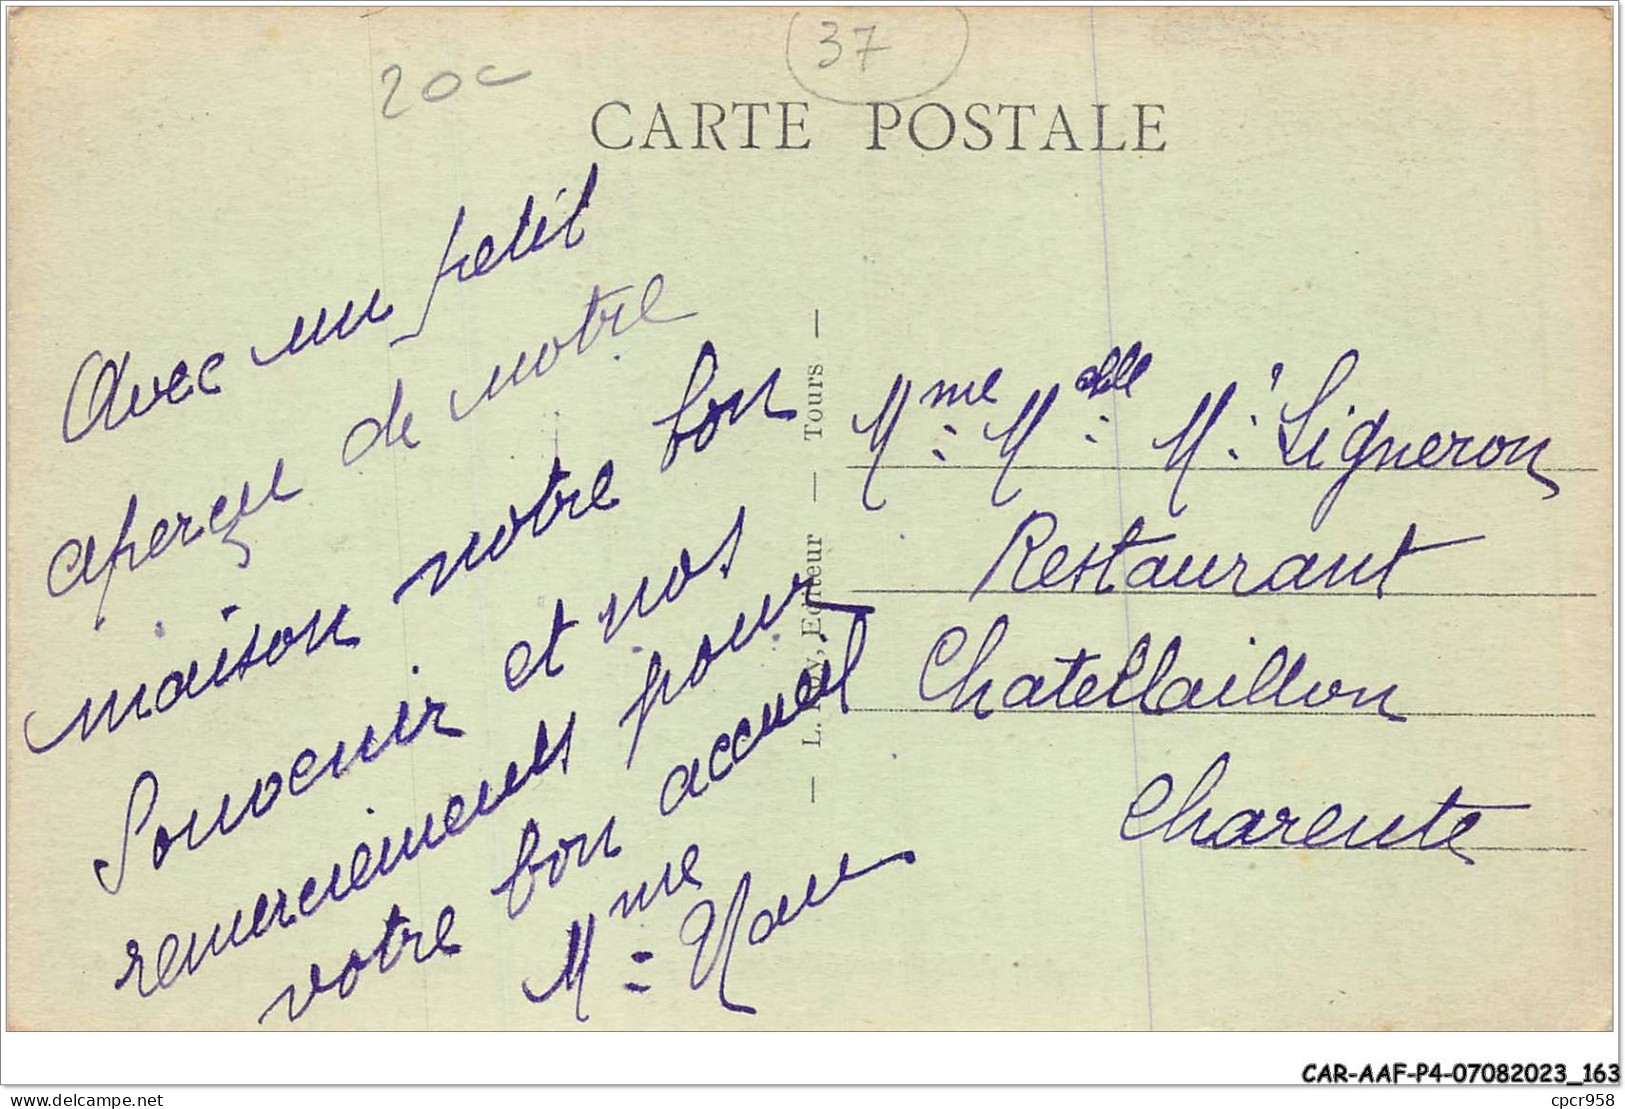 20c
37
CARTE POSTALE
Avec un petit
aperçu de notre
maison notre bon
Souvenir et nos
remerciements pour
votre bon accueil
Mme Nau
— L. Éditeur — Tours —
Mme Melle Mr Ligneron
Restaurant
Chatellaillon
Charente
CAR-AAF-P4-07082023_163
delcampe.net
cpcr958